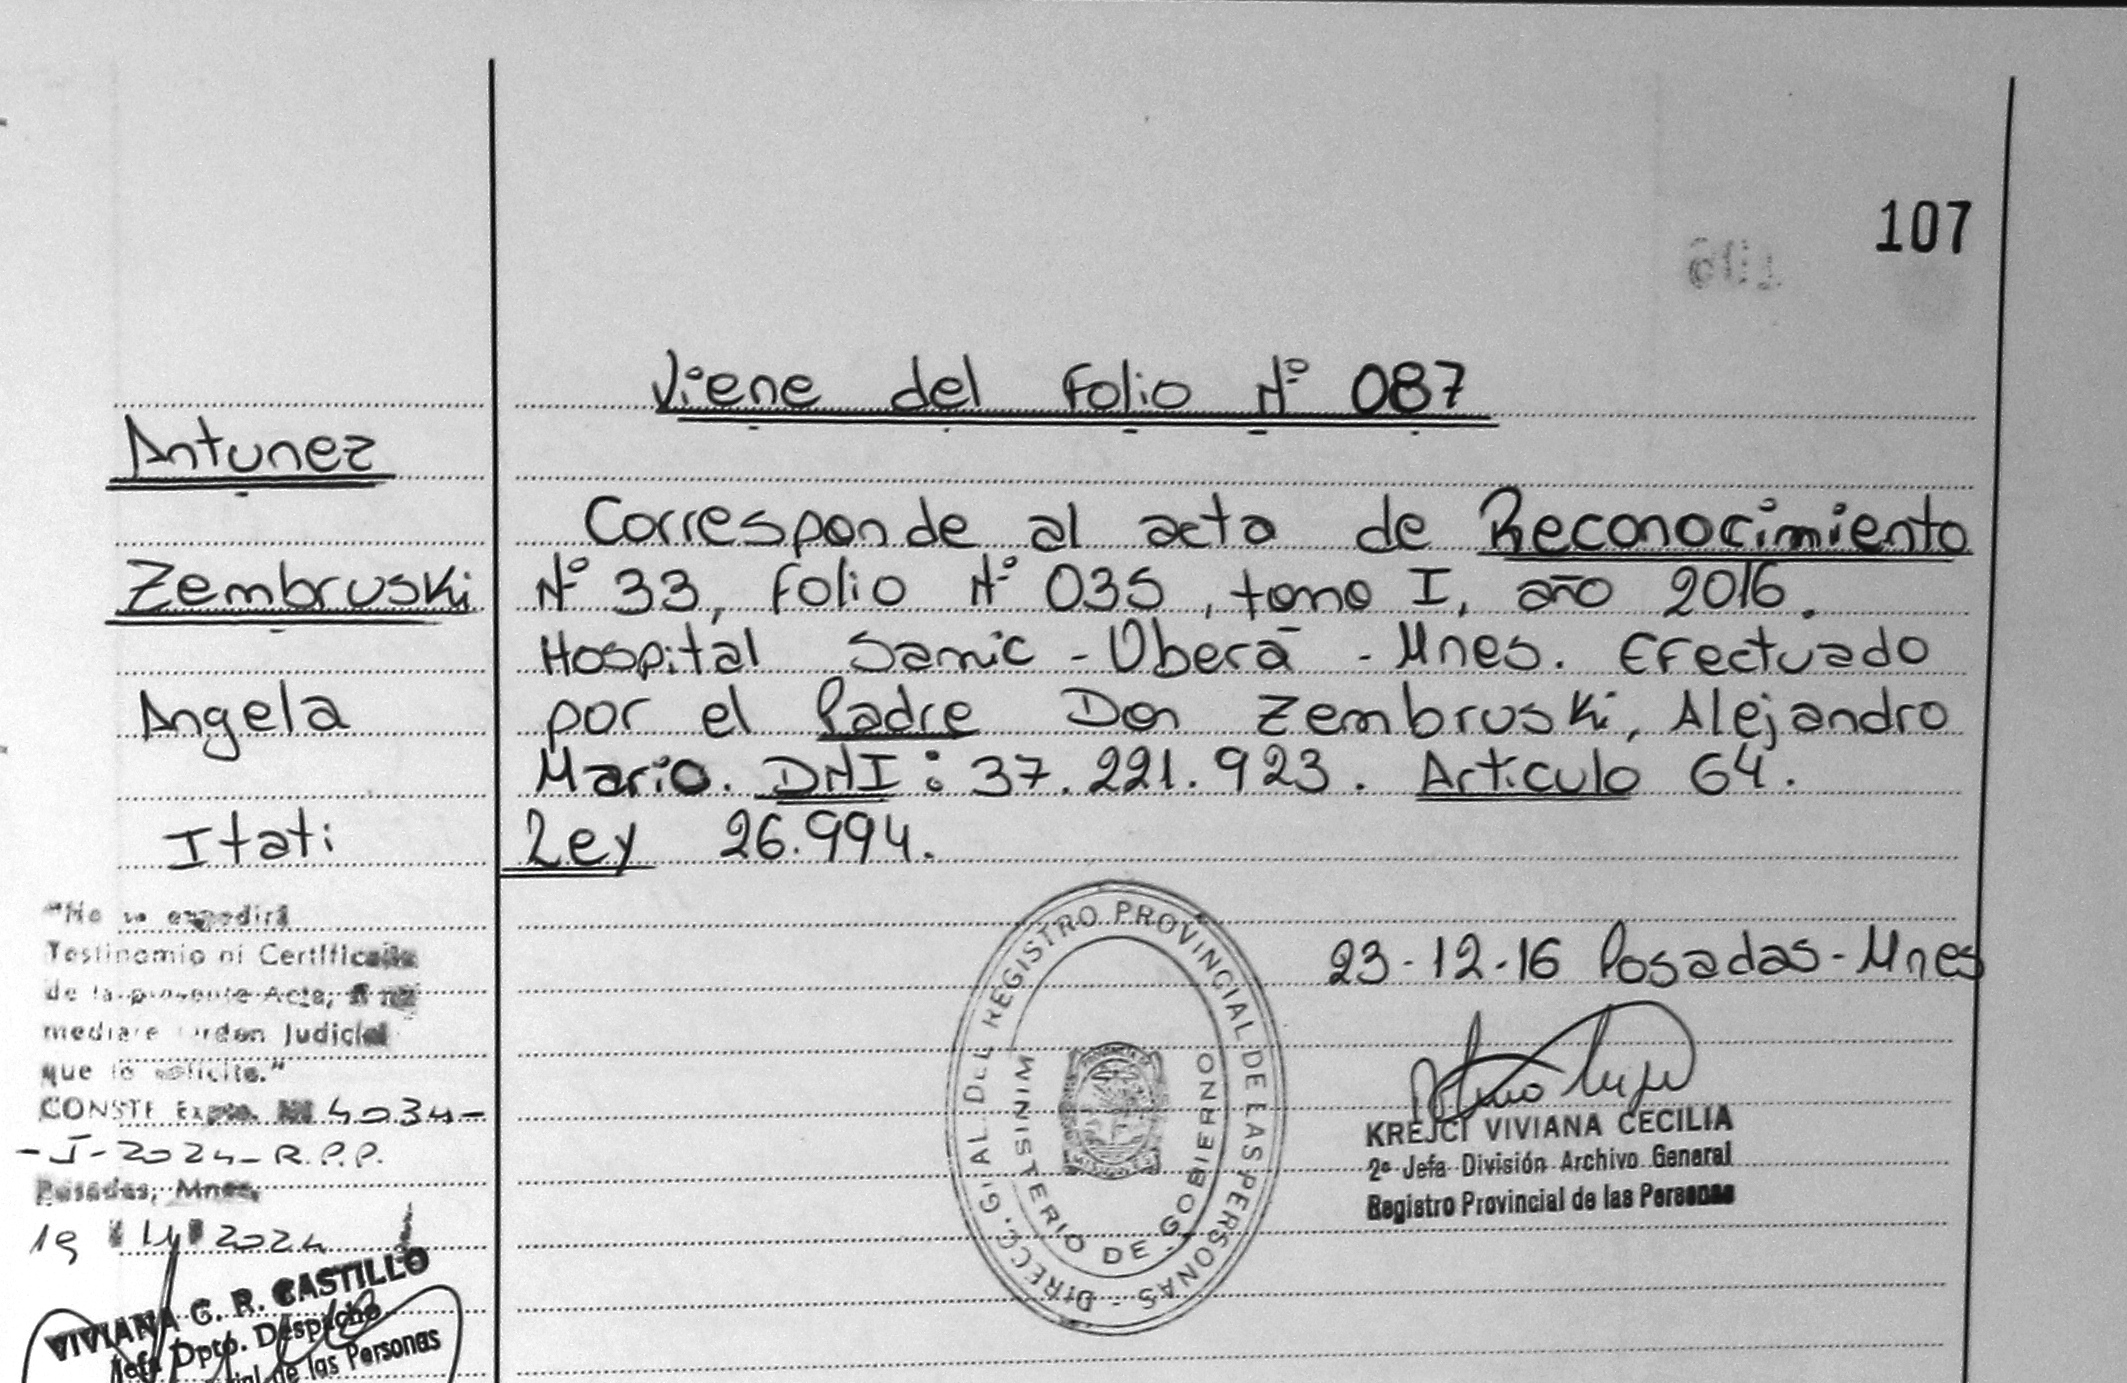 107
Viene del Folio Nº 087
Antunez
Zembruski
Angela
Itati
Corresponde al acta de Reconocimiento
Nº 33, Folio Nº 035, tomo I, año 2016.
Hospital Samic - Oberá - Mnes. Efectuado
por el Padre Don Zembruski, Alejandro
Mario. DNI: 37.221.923. Articulo 64.
Ley 26.994.
23-12-16 Posadas-Mnes
KREJCI VIVIANA CECILIA
2º Jefa División Archivo General
Registro Provincial de las Personas
DIRECC. GRAL. DEL REGISTRO PROVINCIAL DE LAS PERSONAS -
MINISTERIO DE GOBIERNO
"No se expedirá
Testinomio ni Certificado
de la presente Acta, si no
mediare orden Judicial
que lo solicite."
CONSTE Expte. 4034-
-I-2024-R.P.P.
Posadas, Mnes,
19 2024
VIVIANA G. R. CASTILLO
Jefa Dpto. Despacho
de las Personas